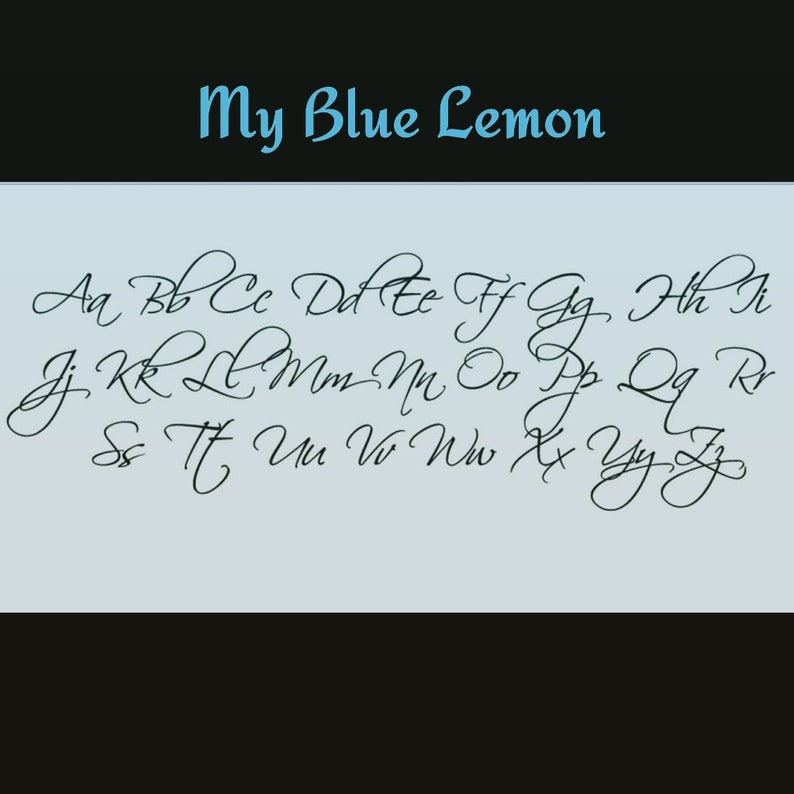 My Blue Lemon
Aa Bb Cc Dd Ee Ff Gg Hh Ii
Jj Kk Ll Mm Nn Oo Pp Qq Rr
Ss Tt Uu Vv Ww Xx Yy Zz